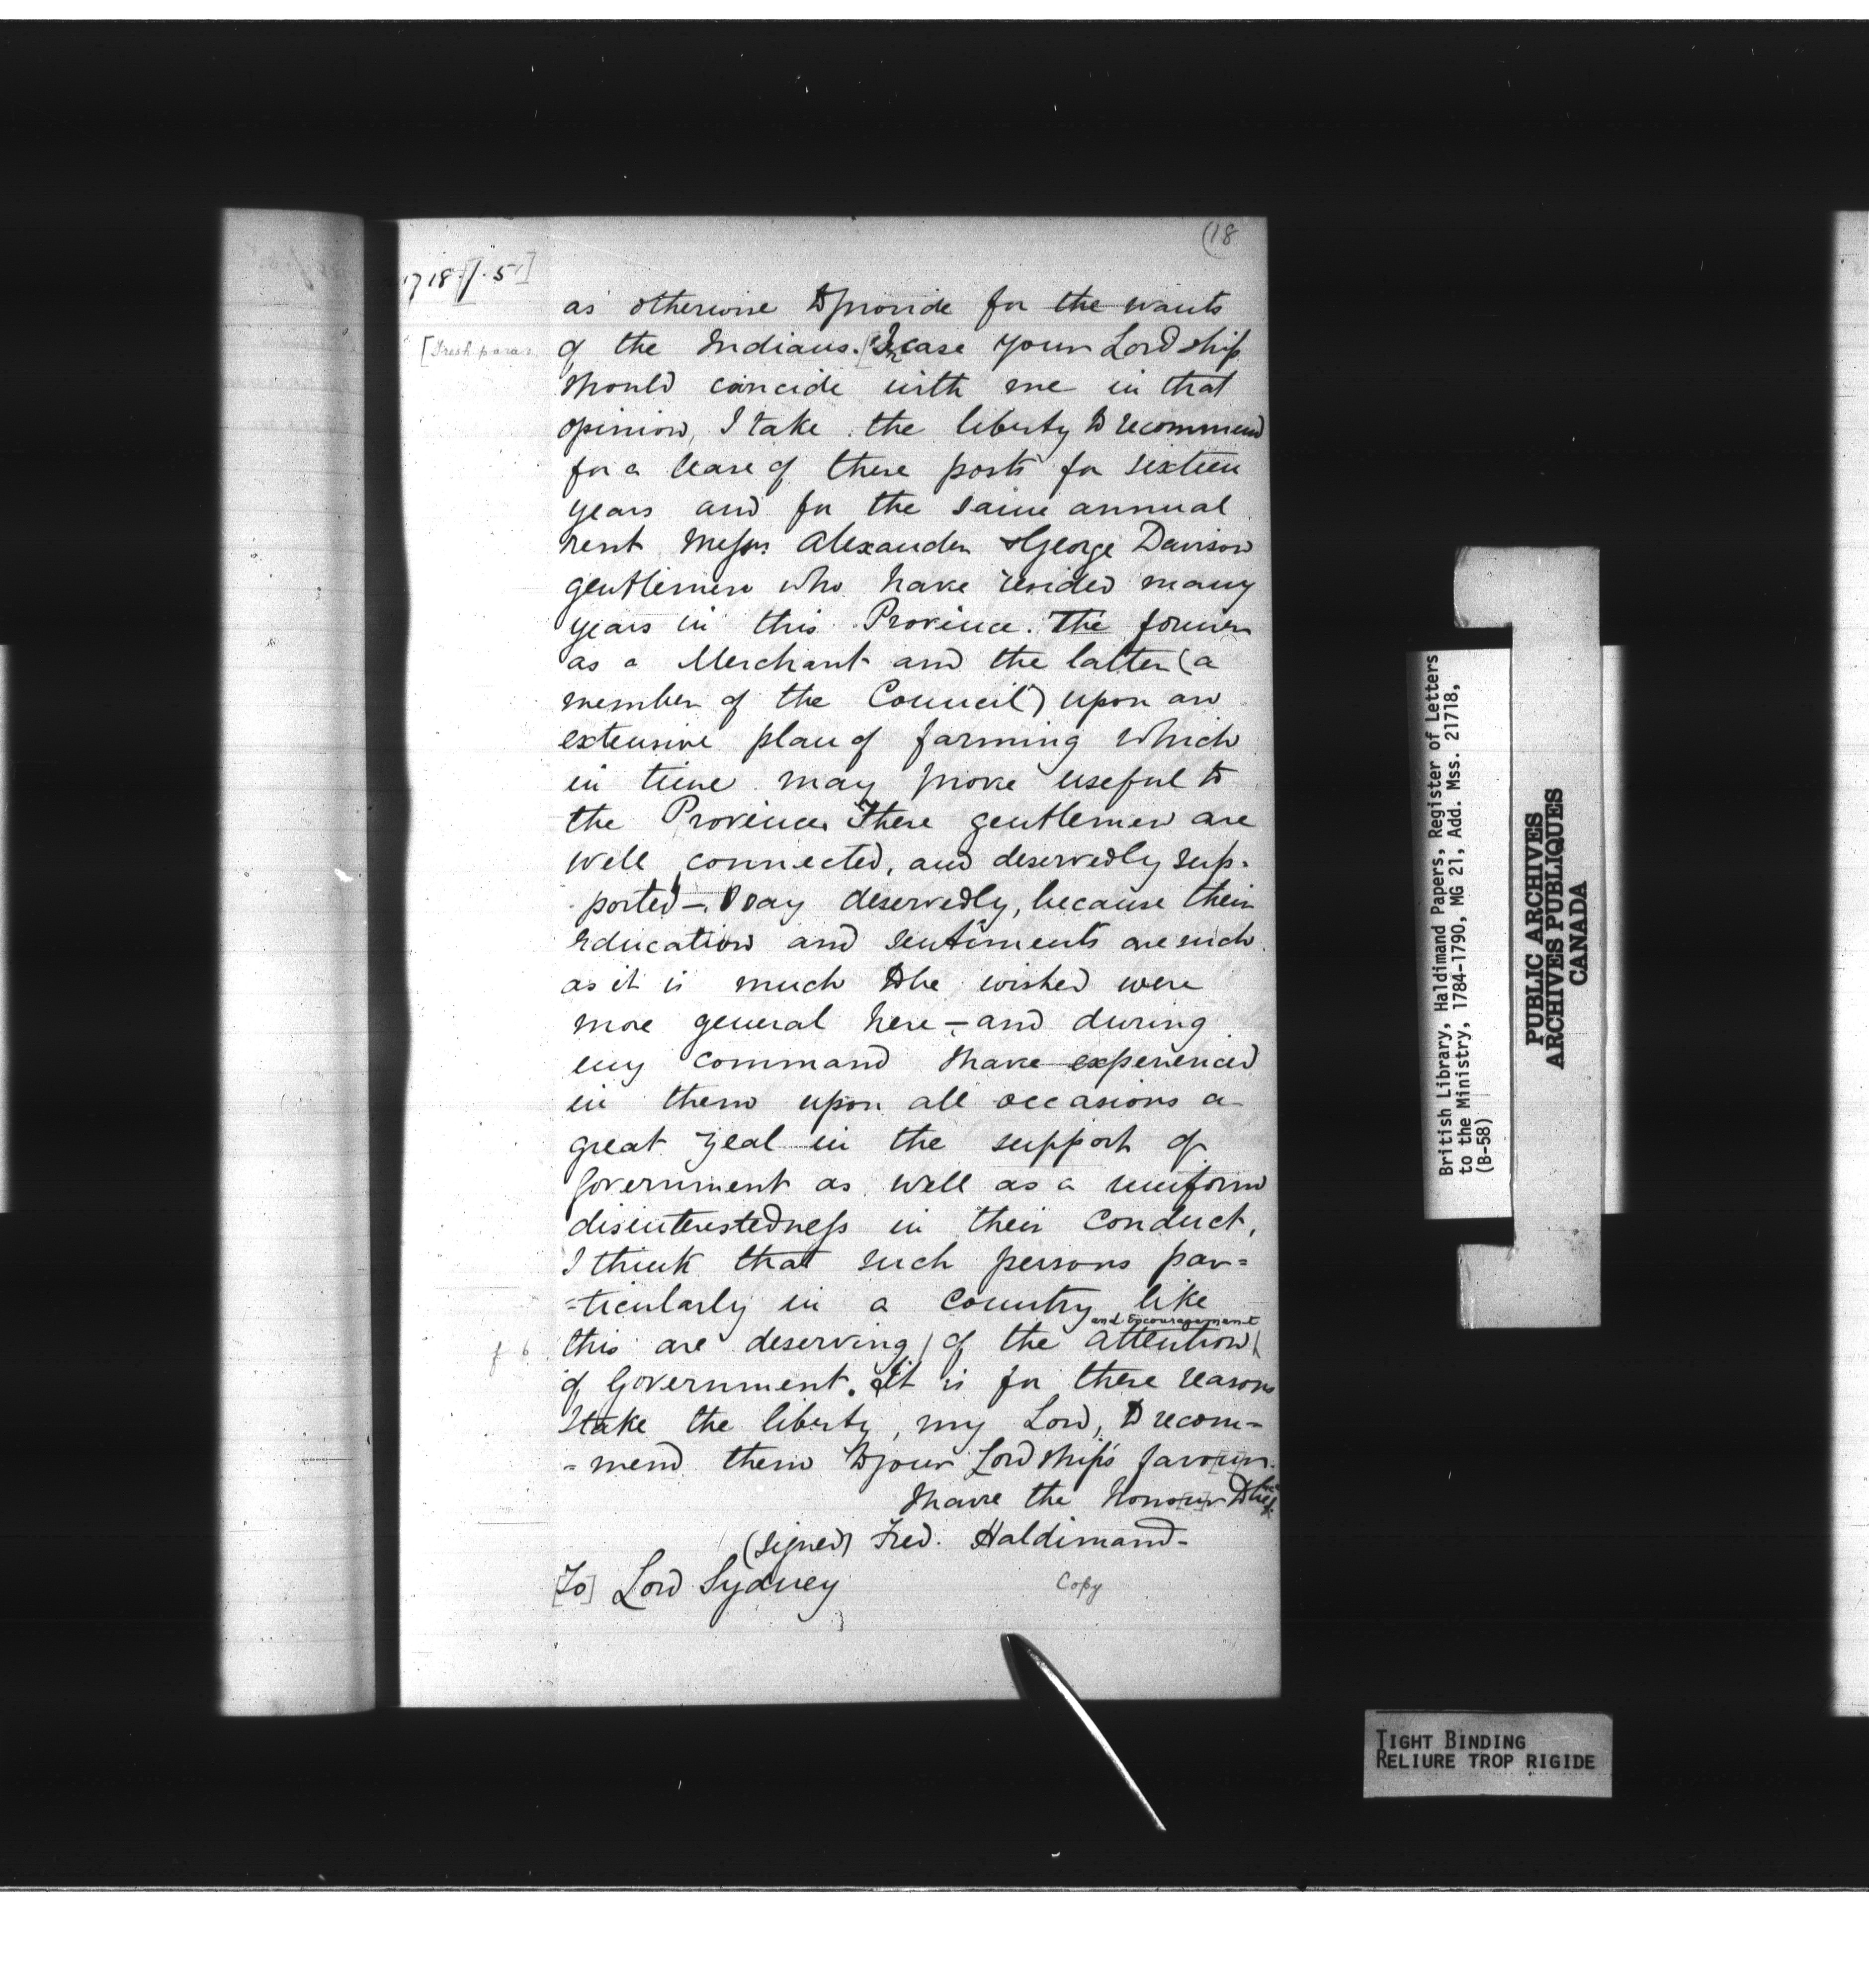 (18
21718 [f. 5]
as otherwise to provide for the wants
[Fresh para:
of the Indians. [In case your Lordship
should coincide with me in that
opinion, I take the liberty to recommend
for a lease of these posts for sixteen
years and for the same annual
rent Messrs Alexander & George Davison
gentlemen who have resided many
years in this Province. The former
as a Merchant and the latter (a
member of the Council) upon an
extensive plan of farming which
in time may prove useful to
the Province. These gentlemen are
well connected, and deservedly sup-
ported – I say deservedly, because their
Education and sentiments are such
as it is much to be wished were
more general here – and during
my command I have experienced
in them upon all occasions a
great zeal in the support of
Government as well as a uniform
disinterestedness in their conduct.
I think that such persons par=
=ticularly in a country like
and Encouragement
f 6
this are deserving / of the attention \
of Government. It is for these reasons
I take the liberty, my Lord, to recom=
=mend them to your Lordship's favour.
I have the honour to be
(signed) Fred. Haldimand-
[To] Lord Sydney
Copy
British Library, Haldimand Papers, Register of Letters
to the Ministry, 1784-1790, MG 21, Add. Mss. 21718,
(B-58)
PUBLIC ARCHIVES
ARCHIVES PUBLIQUES
CANADA
TIGHT BINDING
RELIURE TROP RIGIDE